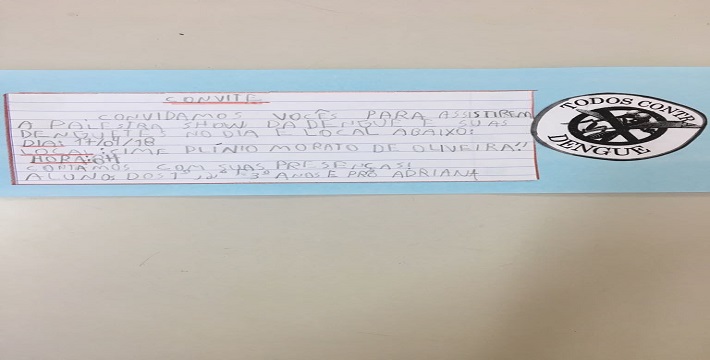 CONVITE
CONVIDAMOS VOCÊS PARA ASSISTIREM
A PALESTRA SHOW DA DENGUE E SUAS
DENGUETES NO DIA E LOCAL ABAIXO:
DIA: 17/04/18
LOCAL: CIME PLÍNIO MORATO DE OLIVEIRA!!
HORA: 8H
CONTAMOS COM SUAS PRESENÇAS!
ALUNOS DOS 1º, 2º E 3º ANOS E PRÔ ADRIANA
TODOS CONTR
DENGUE